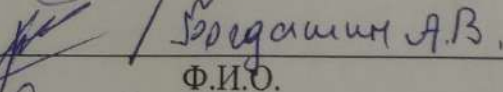 / Богдашин А.В.
Ф.И.О.